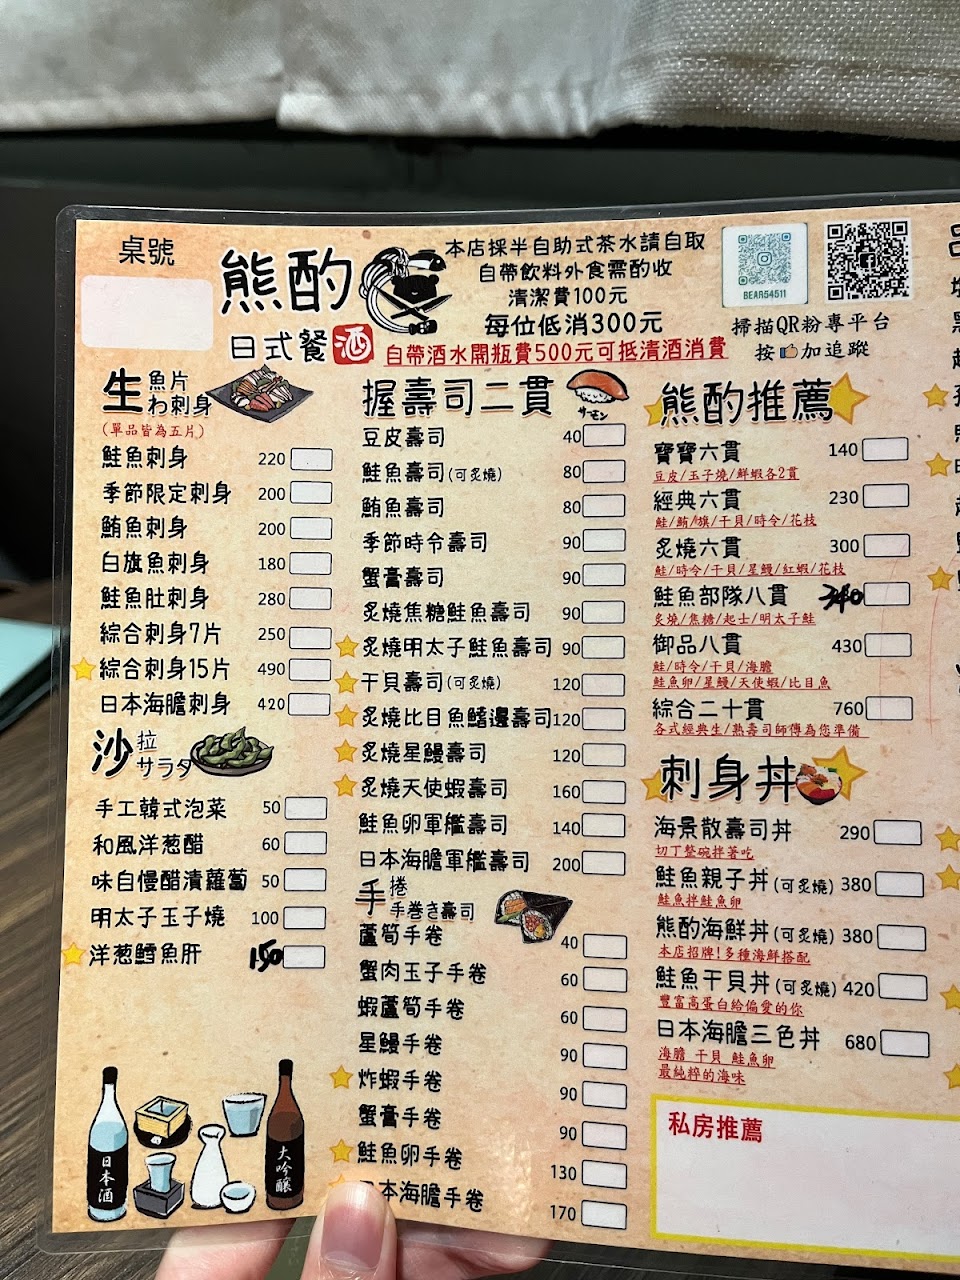 桌號
熊酌
日式餐酒
本店採半自助式茶水請自取
自帶飲料外食需酌收
清潔費100元
每位低消300元
自帶酒水開瓶費500元可抵清酒消費
BEAR54511
掃描QR粉專平台
按👍加追蹤
生魚片
わ刺身
(單品皆為五片)
鮭魚刺身 220
季節限定刺身 200
鮪魚刺身 200
白旗魚刺身 180
鮭魚肚刺身 280
綜合刺身7片 250
綜合刺身15片 490
日本海膽刺身 420
沙拉
サラダ
手工韓式泡菜 50
和風洋葱醋 60
味自慢醋漬蘿蔔 50
明太子玉子燒 100
洋葱鱈魚肝 150
日本酒
大吟釀
握壽司二貫
サーモン
豆皮壽司 40
鮭魚壽司(可炙燒) 80
鮪魚壽司 80
季節時令壽司 90
蟹膏壽司 90
炙燒焦糖鮭魚壽司 90
炙燒明太子鮭魚壽司 90
干貝壽司(可炙燒) 120
炙燒比目魚鰭邊壽司 120
炙燒星鰻壽司 120
炙燒天使蝦壽司 160
鮭魚卵軍艦壽司 140
日本海膽軍艦壽司 200
手捲
手巻き壽司
蘆筍手卷 40
蟹肉玉子手卷 60
蝦蘆筍手卷 60
星鰻手卷 90
炸蝦手卷 90
蟹膏手卷 90
鮭魚卵手卷 130
日本海膽手卷 170
熊酌推薦
寶寶六貫 140
豆皮/玉子燒/鮮蝦各2貫
經典六貫 230
鮭/鮪/旗/干貝/時令/花枝
炙燒六貫 300
鮭/時令/干貝/星鰻/紅蝦/花枝
鮭魚部隊八貫 340
炙燒/焦糖/起士/明太子鮭
御品八貫 430
鮭/時令/干貝/海膽
鮭魚卵/星鰻/天使蝦/比目魚
綜合二十貫 760
各式經典生/熟壽司師傅為您準備
刺身丼
海景散壽司丼 290
切丁整碗拌著吃
鮭魚親子丼(可炙燒) 380
鮭魚拌鮭魚卵
熊酌海鮮丼(可炙燒) 380
本店招牌!多種海鮮搭配
鮭魚干貝丼(可炙燒) 420
豐富高蛋白給偏愛的你
日本海膽三色丼 680
海膽 干貝 鮭魚卵
最純粹的海味
私房推薦